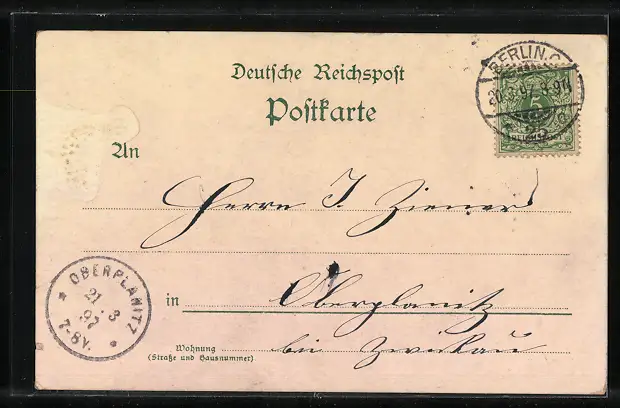 Deutsche Reichspost
Postkarte
BERLIN.C
20.3.97.
25
5
An
Herrn J.
OBERPLANITZ
21
3
97
7-8V.
in Oberplanitz
Wohnung
(Straße und Hausnummer)
bei Zwickau